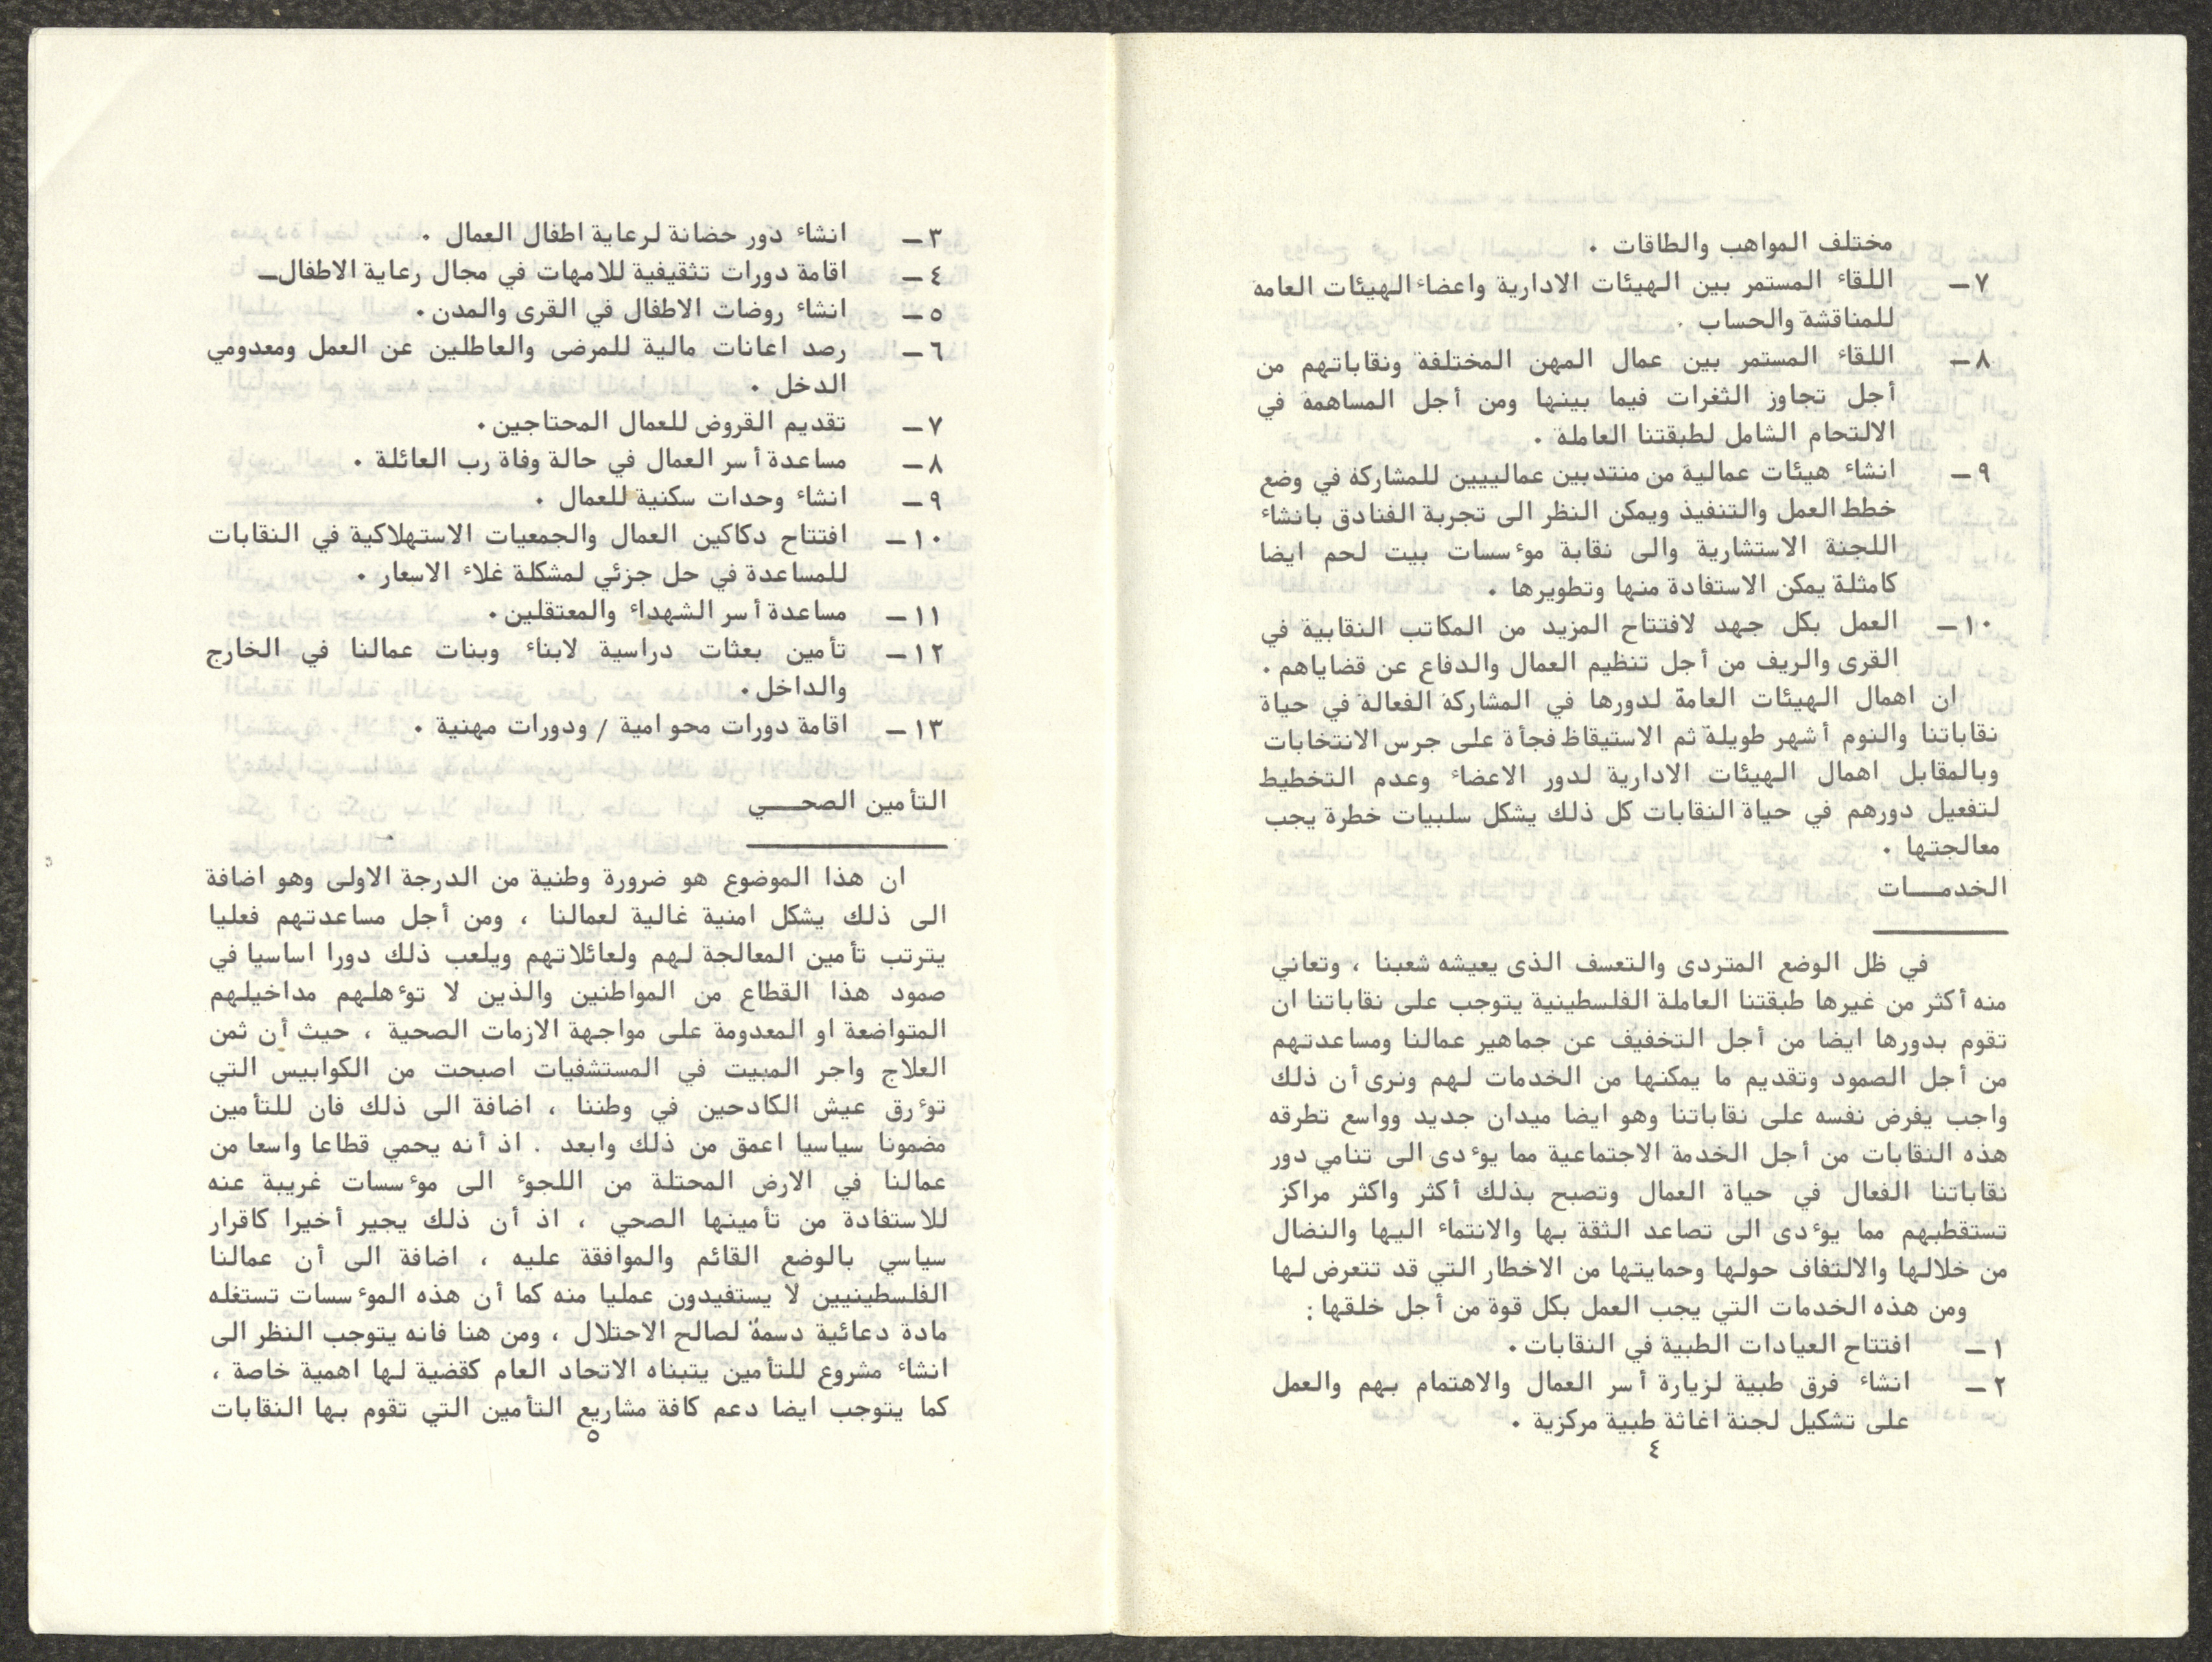 مختلف المواهب والطاقات .
٧ــ اللقاء المستمر بين الهيئات الادارية واعضاء الهيئات العامه
للمناقشة والحساب .
٨ــ اللقاء المستمر بين عمال المهن المختلفة ونقاباتهم من
أجل تجاوز الثغرات فيما بينها ومن أجل المساهمة في
الالتحام الشامل لطبقتنا العاملة .
٩ــ انشاء هيئات عمالية من منتدبين عمالييين للمشاركة في وضع
خطط العمل والتنفيذ ويمكن النظر الى تجربة الفنادق بانشاء
اللجنة الاستشارية والى نقابة موءسسات بيت لحم ايضا
كامثلة يمكن الاستفادة منها وتطويرها .
١٠ــ العمل بكل جهد لافتتاح المزيد من المكاتب النقابية في
القرى والريف من أجل تنظيم العمال والدفاع عن قضاياهم .
ان اهمال الهيئات العامة لدورها في المشاركة الفعالة في حياة
نقاباتنا والنوم أشهر طويلة ثم الاستيقاظ فجأة على جرس الانتخابات
وبالمقابل اهمال الهيئات الادارية لدور الاعضاء وعدم التخطيط
لتفعيل دورهم في حياة النقابات كل ذلك يشكل سلبيات خطرة يجب
معالجتها .
الخدمـــات
في ظل الوضع المتردى والتعسف الذى يعيشه شعبنا ، وتعاني
منه أكثر من غيرها طبقتنا العاملة الفلسطينية يتوجب على نقاباتنا ان
تقوم بدورها ايضا من أجل التخفيف عن جماهير عمالنا ومساعدتهم
من أجل الصمود وتقديم ما يمكنها من الخدمات لهم ونرى أن ذلك
واجب يفرض نفسه على نقاباتنا وهو ايضا ميدان جديد وواسع تطرقه
هذه النقابات من أجل الخدمة الاجتماعية مما يوءدى الى تنامي دور
نقاباتنا الفعال في حياة العمال وتصبح بذلك أكثر واكثر مراكز
تستقطبهم مما يوءدى الى تصاعد الثقة بها والانتماء اليها والنضال
من خلالها والالتفاف حولها وحمايتها من الاخطار التي قد تتعرض لها
ومن هذه الخدمات التي يجب العمل بكل قوة من أجل خلقها :
١ــ افتتاح العيادات الطبية في النقابات .
٢ــ انشاء فرق طبية لزيارة أسر العمال والاهتمام بهم والعمل
على تشكيل لجنة اغاثة طبية مركزية .
٤
٣ــ انشاء دور حضانة لرعاية اطفال العمال .
٤ــ اقامة دورات تثقيفية للامهات في مجال رعاية الاطفالــ
٥ــ انشاء روضات الاطفال في القرى والمدن .
٦ــ رصد اعانات مالية للمرضى والعاطلين عن العمل ومعدومي
الدخل .
٧ــ تقديم القروض للعمال المحتاجين .
٨ــ مساعدة أسر العمال في حالة وفاة رب العائلة .
٩ــ انشاء وحدات سكنية للعمال .
١٠ــ افتتاح دكاكين العمال والجمعيات الاستهلاكية في النقابات
للمساعدة في حل جزئي لمشكلة غلاء الاسعار .
١١ــ مساعدة أسر الشهداء والمعتقلين .
١٢ــ تأمين بعثات دراسية لابناء وبنات عمالنا في الخارج
والداخل .
١٣ــ اقامة دورات محو امية / ودورات مهنية .
التأمين الصحـــي
ان هذا الموضوع هو ضرورة وطنية من الدرجة الاولى وهو اضافة
الى ذلك يشكل امنية غالية لعمالنا ، ومن أجل مساعدتهم فعليا
يترتب تأمين المعالجة لهم ولعائلاتهم ويلعب ذلك دورا اساسيا في
صمود هذا القطاع من المواطنين والذين لا توءهلهم مداخيلهم
المتواضعة او المعدومة على مواجهة الازمات الصحية ، حيث أن ثمن
العلاج واجر المبيت في المستشفيات اصبحت من الكوابيس التي
توءرق عيش الكادحين في وطننا ، اضافة الى ذلك فان للتأمين
مضمونا سياسيا اعمق من ذلك وابعد . اذ أنه يحمي قطاعا واسعا من
عمالنا في الارض المحتلة من اللجوء الى موءسسات غريبة عنه
للاستفادة من تأمينها الصحي ، اذ أن ذلك يجير أخيرا كاقرار
سياسي بالوضع القائم والموافقة عليه ، اضافة الى أن عمالنا
الفلسطينيين لا يستفيدون عمليا منه كما أن هذه الموءسسات تستغله
مادة دعائية دسمة لصالح الاحتلال ، ومن هنا فانه يتوجب النظر الى
انشاء مشروع للتأمين يتبناه الاتحاد العام كقضية لها اهمية خاصة ،
كما يتوجب ايضا دعم كافة مشاريع التأمين التي تقوم بها النقابات
٥